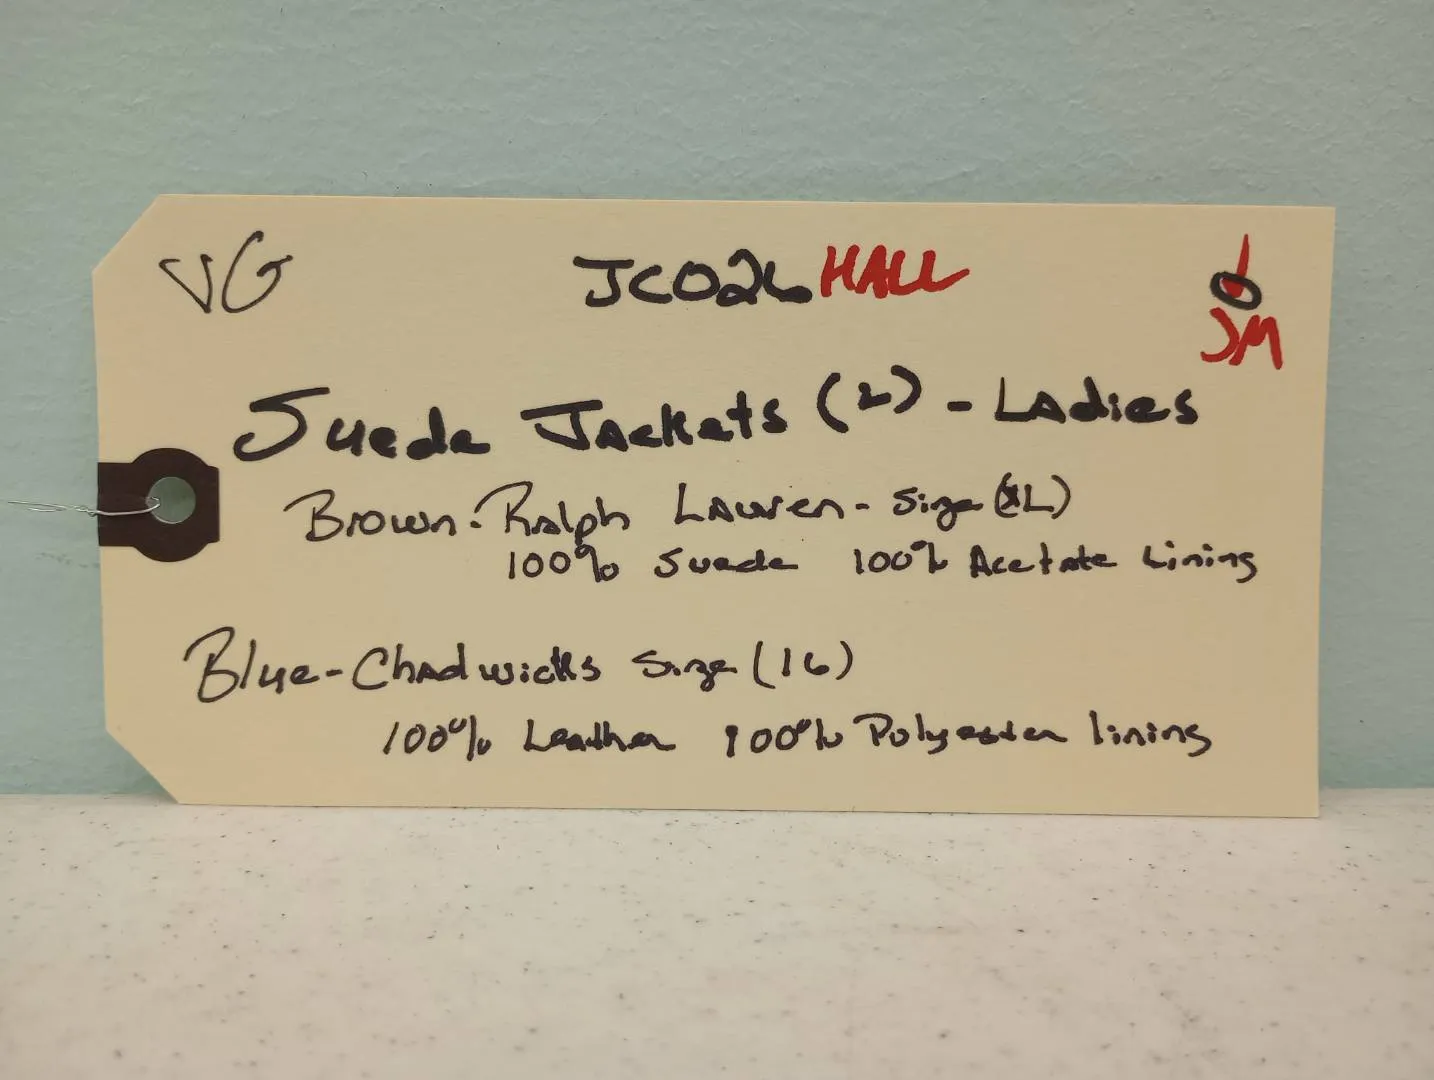 VG JCO26 HALL
JM
Suede Jackets (2) - Ladies
Brown - Ralph Lauren - Size (XL)
100% Suede 100% Acetate Lining
Blue - Chadwicks Size (16)
100% Leather 100% Polyester lining